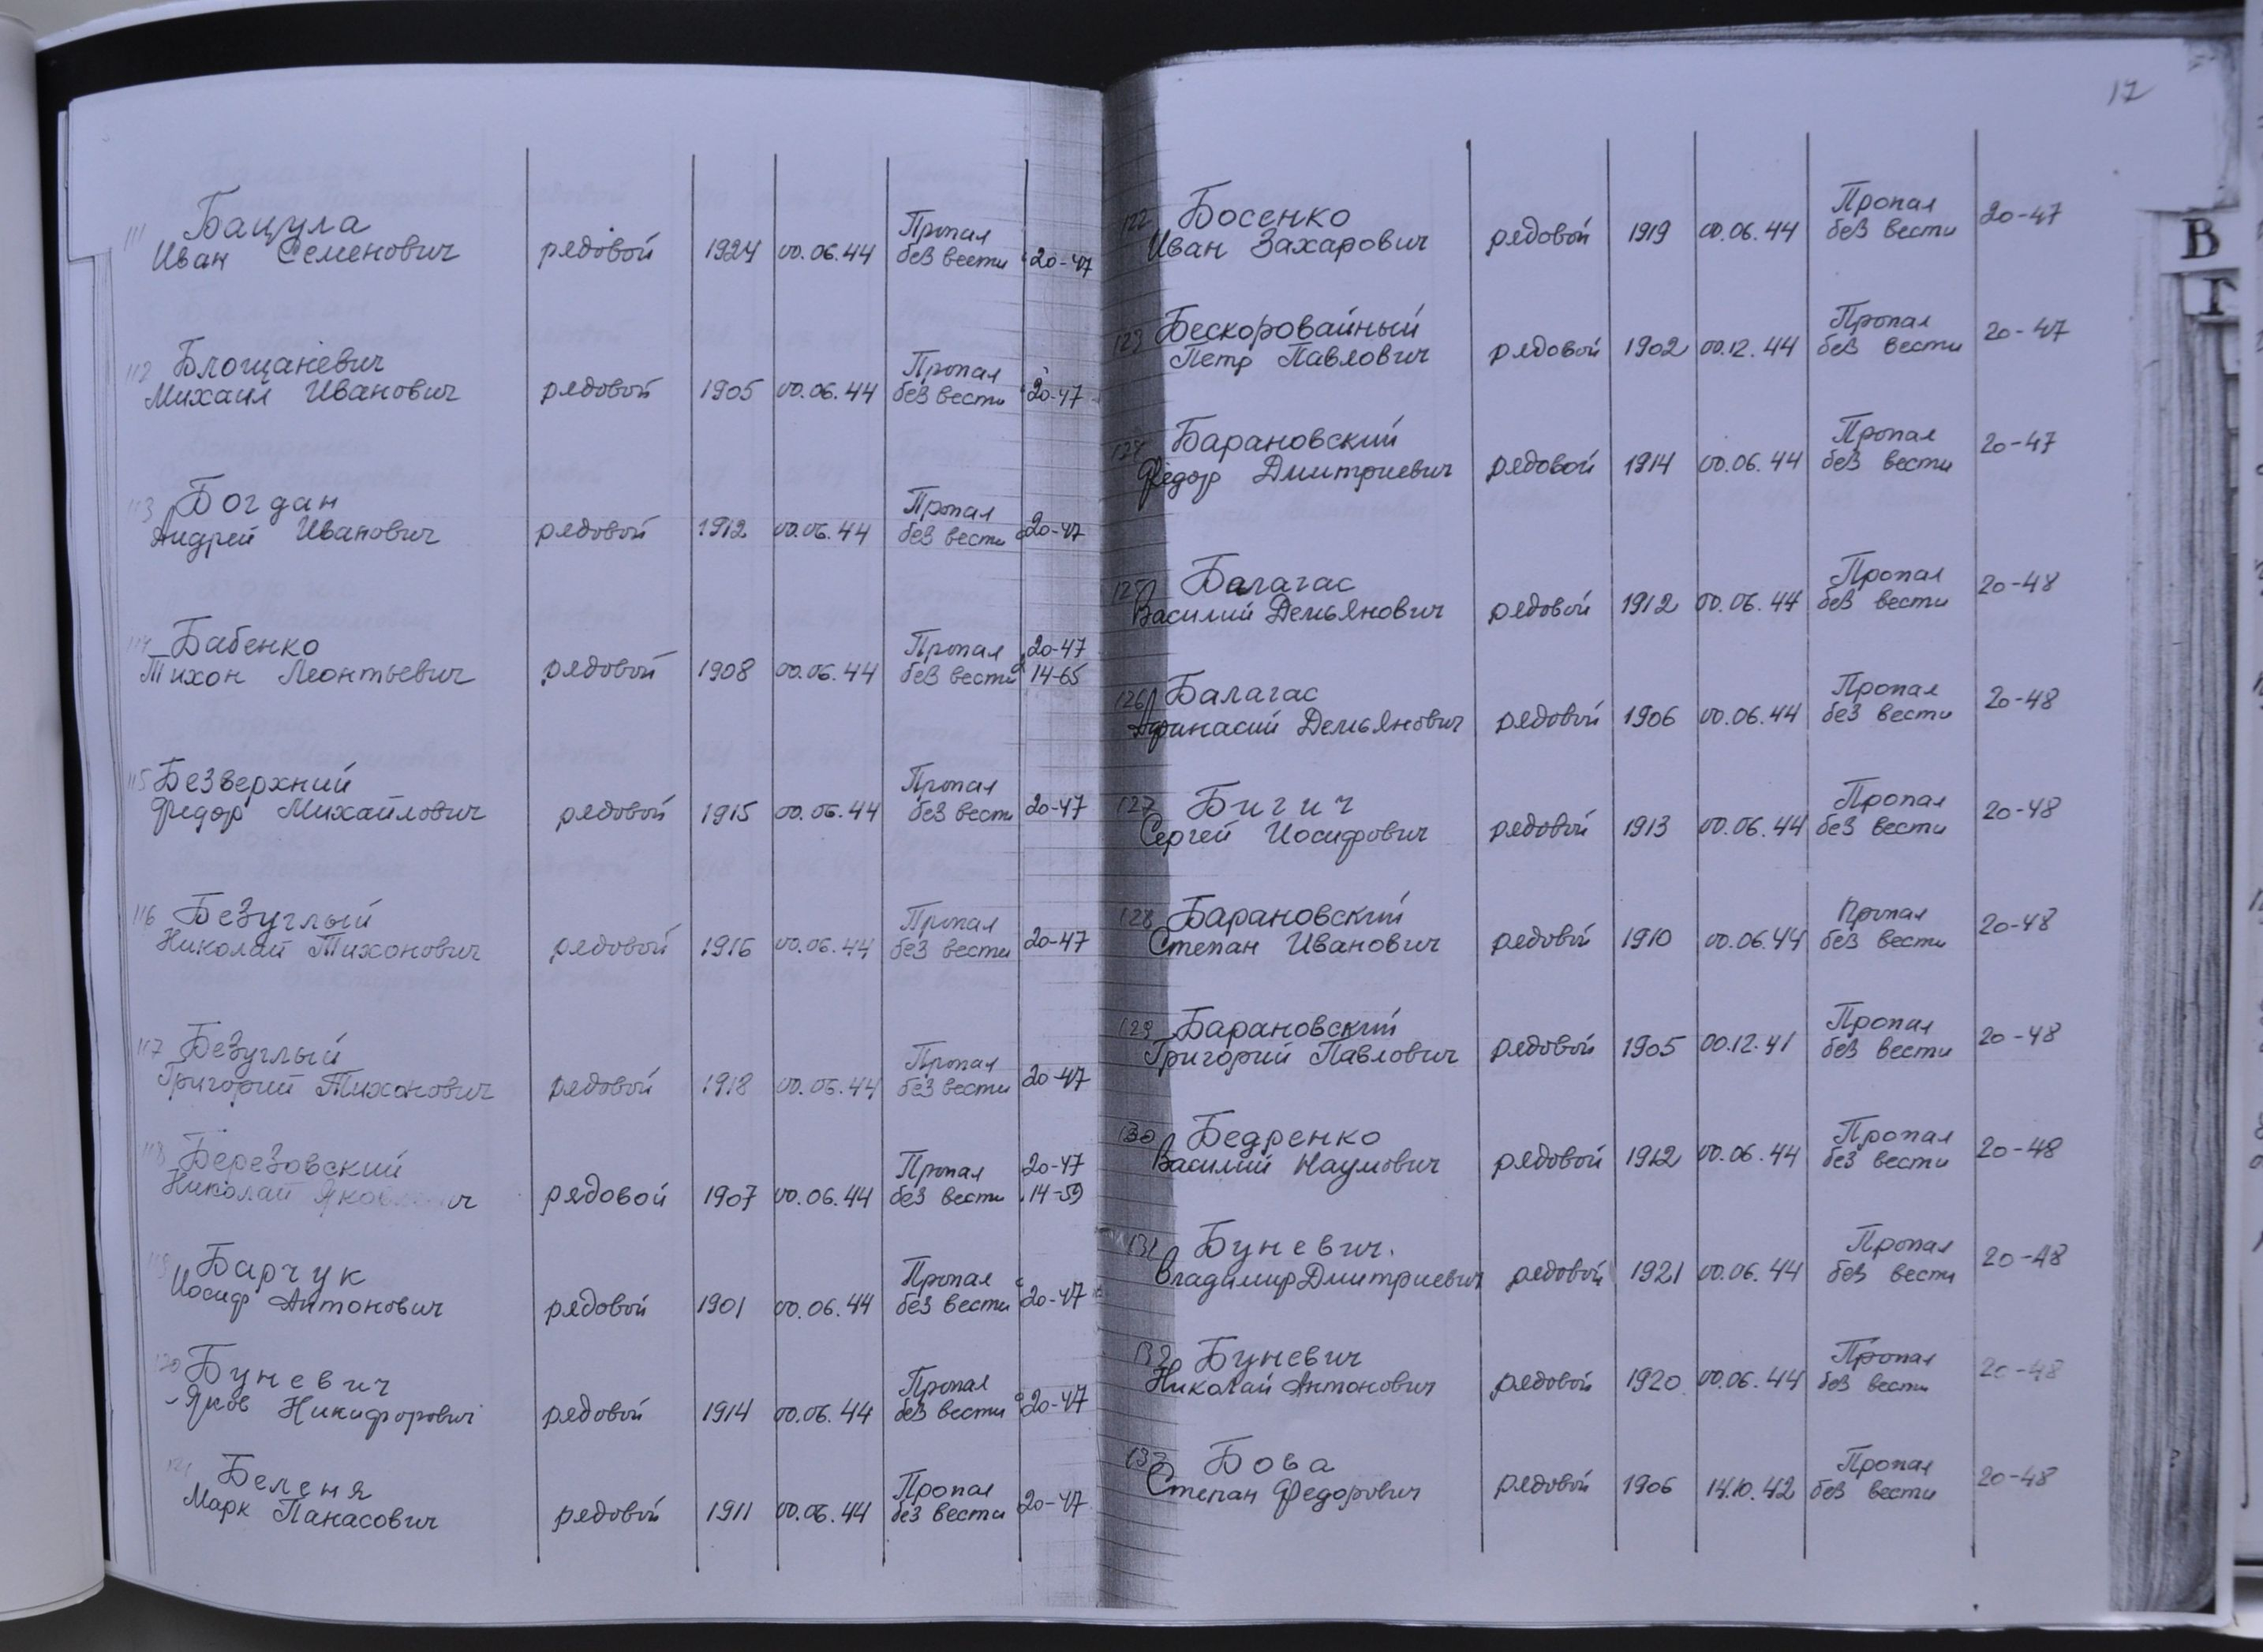 17
В
Г
111 Бацула
Иван Семенович рядовой 1924 00.06.44 Пропал без вести 20-47
112 Блощаневич
Михаил Иванович рядовой 1905 00.06.44 Пропал без вести 20-47
113 Богдан
Андрей Иванович рядовой 1912 00.06.44 Пропал без вести 20-47
114 Бабенко
Тихон Леонтьевич рядовой 1908 00.06.44 Пропал без вести 20-47 14-65
115 Безверхний
Федор Михайлович рядовой 1915 00.06.44 Пропал без вести 20-47
116 Безуглый
Николай Тихонович рядовой 1916 00.06.44 Пропал без вести 20-47
117 Безуглый
Григорий Тихонович рядовой 1918 00.06.44 Пропал без вести 20-47
118 Березовский
Николай рядовой 1907 00.06.44 Пропал без вести 20-47 14-59
119 Барчук
Иосиф Антонович рядовой 1901 00.06.44 Пропал без вести 20-47
120 Буневич
Яков Никифорович рядовой 1914 00.06.44 Пропал без вести 20-47
121 Беленя
Марк Панасович рядовой 1911 00.06.44 Пропал без вести 20-47
122 Босенко
Иван Захарович рядовой 1919 00.06.44 Пропал без вести 20-47
123 Бескоровайный
Петр Павлович рядовой 1902 00.12.44 Пропал без вести 20-47
124 Барановский
Федор Дмитриевич рядовой 1914 00.06.44 Пропал без вести 20-47
125 Балагас
Василий Демьянович рядовой 1912 00.06.44 Пропал без вести 20-48
126 Балагас
Афанасий Демьянович рядовой 1906 00.06.44 Пропал без вести 20-48
127 Бигич
Сергей Иосифович рядовой 1913 00.06.44 Пропал без вести 20-48
128 Барановский
Степан Иванович рядовой 1910 00.06.44 Пропал без вести 20-48
129 Барановский
Григорий Павлович рядовой 1905 00.12.41 Пропал без вести 20-48
130 Бедренко
Василий Наумович рядовой 1912 00.06.44 Пропал без вести 20-48
131 Буневич.
Владимир Дмитриевич рядовой 1921 00.06.44 Пропал без вести 20-48
132 Буневич
Николай Антонович рядовой 1920 00.06.44 Пропал без вести 20-48
133 Бова
Степан Федорович рядовой 1906 14.10.42 Пропал без вести 20-48